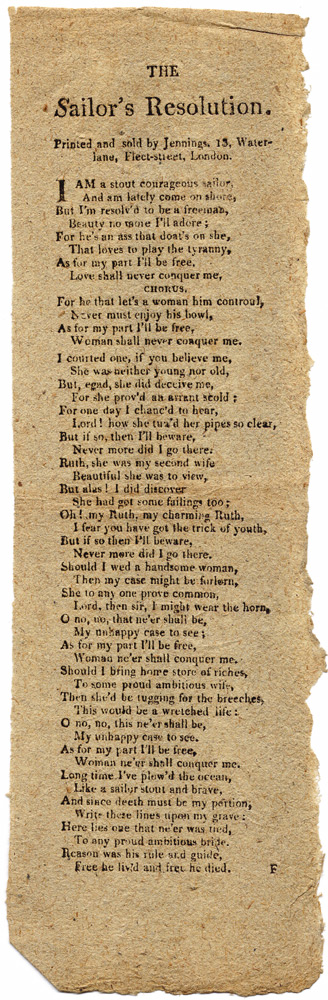 THE
Sailor's Resolution.
Printed and sold by Jennings, 13, Water-
lane, Fleet-street, London.
I AM a stout courageous sailor,
And am lately come on shore,
But I'm resolv'd to be a freeman,
Beauty no more I'll adore;
For he's an ass that doat's on she,
That loves to play the tyranny,
As for my part I'll be free,
Love shall never conquer me,
CHORUS.
For he that let's a woman him controul,
Never must enjoy his bowl,
As for my part I'll be free,
Woman shall never conquer me.
I courted one, if you believe me,
She was neither young nor old,
But, egad, she did deceive me,
For she prov'd an arrant scold;
For one day I chanc'd to hear,
Lord! how she tun'd her pipes so clear,
But if so, then I'll beware,
Never more did I go there.
Ruth, she was my second wife
Beautiful she was to view,
But alas! I did discover
She had got some failings too;
Oh! my Ruth, my charming Ruth,
I fear you have got the trick of youth,
But if so then I'll beware,
Never more did I go there.
Should I wed a handsome woman,
Then my case might be forlorn,
She to any one prove common,
Lord, then sir, I might wear the horn,
O no, no, that ne'er shall be,
My unhappy case to see;
As for my part I'll be free,
Woman ne'er shall conquer me.
Should I bring home store of riches,
To some proud ambitious wife,
Then she'd be tugging for the breeches,
This would be a wretched life:
O no, no, this ne'er shall be,
My unhappy case to see.
As for my part I'll be free,
Woman ne'er shall conquer me.
Long time I've plow'd the ocean,
Like a sailor stout and brave,
And since deeth must be my portion,
Write these lines upon my grave:
Here lies one that ne'er was tied,
To any proud ambitious bride.
Reason was his rule and guide,
Free he liv'd and free he died. F